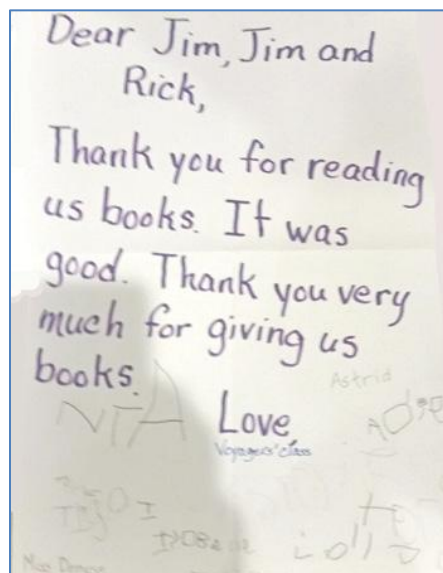 Dear Jim, Jim and
Rick,
Thank you for reading
us books. It was
good. Thank you very
much for giving us
books.
Astrid
Love,
Voyagers' class